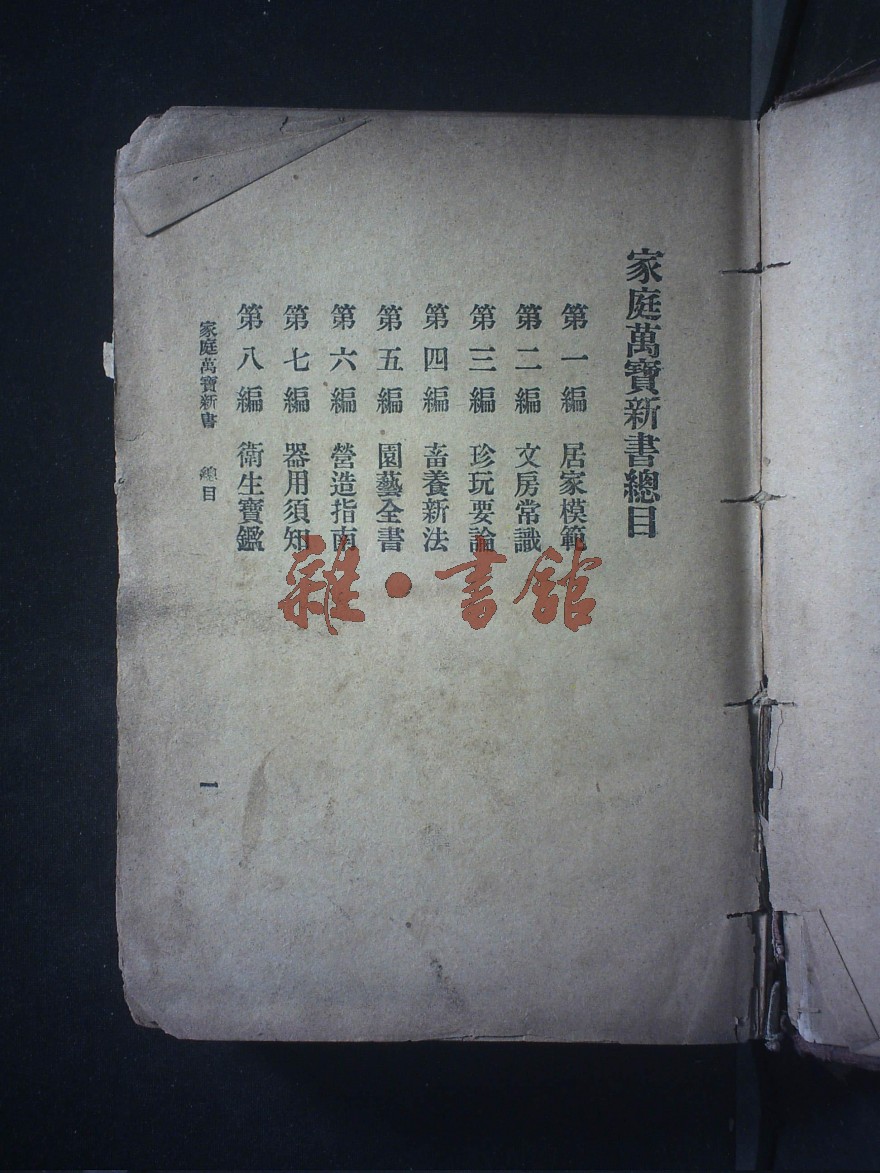 家庭萬寶新書總目
第一編 居家模範
第二編 文房常識
第三編 珍玩要論
第四編 畜養新法
第五編 園藝全書
第六編 營造指南
第七編 器用須知
第八編 衛生寶鑑
家庭萬寶新書 總目 一
雜·書館